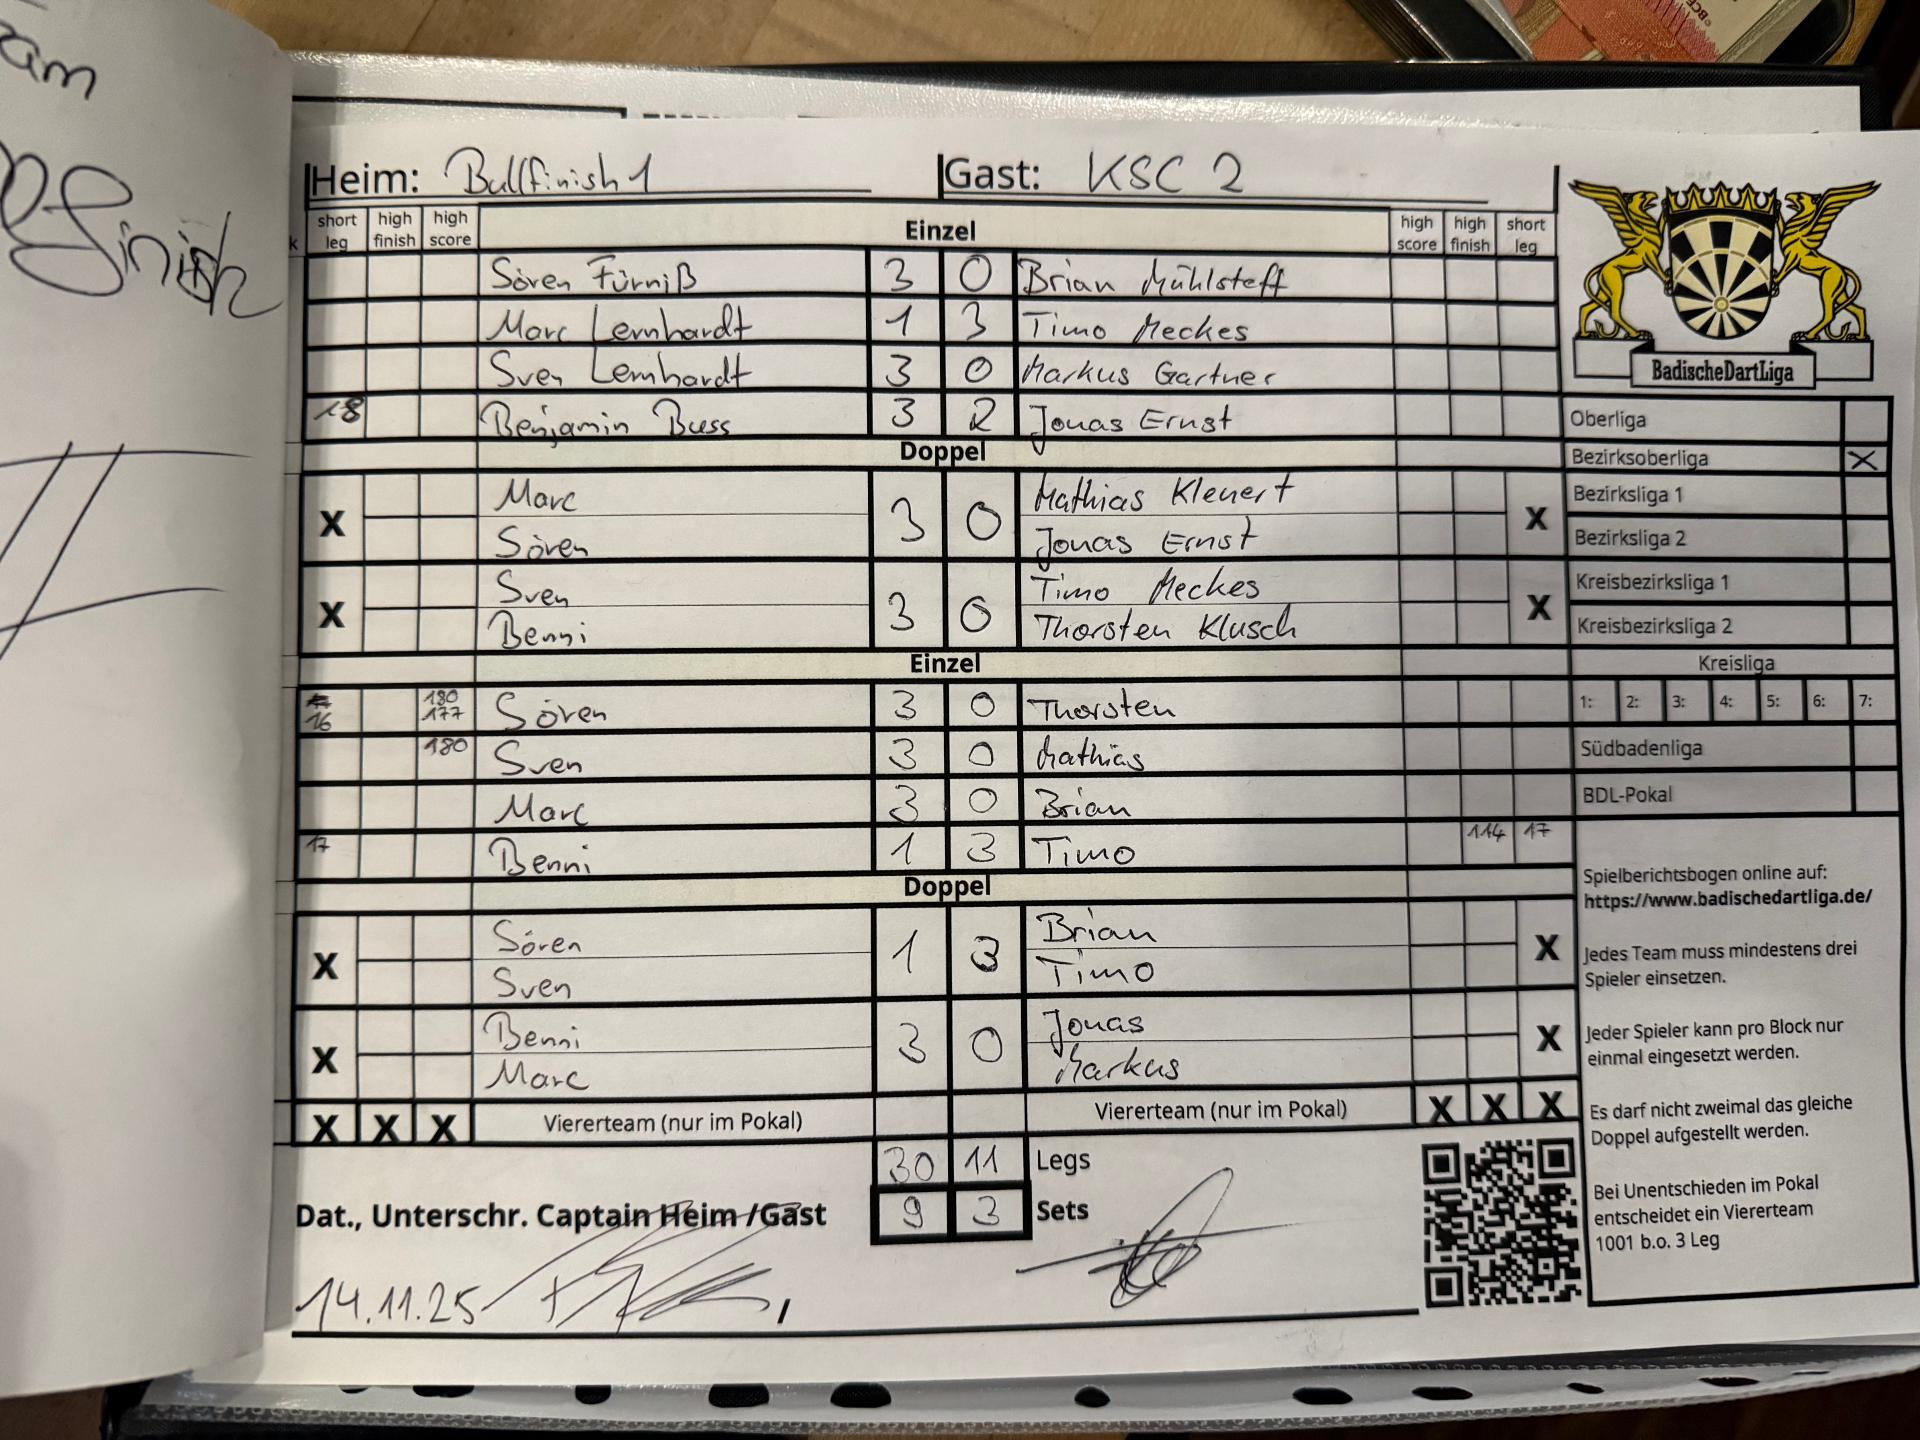 am
finish
Heim: Bullfinish 1 Gast: KSC 2
short leg high finish high score Einzel high score high finish short leg
Sören Fürniß 3 0 Brian Mühlsteff
Marc Lernhardt 1 3 Timo Meckes
Sven Lernhardt 3 0 Markus Gartner
18 Benjamin Buss 3 2 Jonas Ernst
Doppel
Marc Mathias Klenert
X 3 0 X
Sören Jonas Ernst
Sven Timo Meckes
X 3 0 X
Benni Thorsten Klusch
Einzel
16 180 177 Sören 3 0 Thorsten
180 Sven 3 0 Mathias
Marc 3 0 Brian
17 Benni 1 3 Timo 114 17
Doppel
Sören Brian
X 1 3 X
Sven Timo
Benni Jonas
X 3 0 X
Marc Markus
X X X Viererteam (nur im Pokal) Viererteam (nur im Pokal) X X X
30 11 Legs
Dat., Unterschr. Captain Heim /Gast 9 3 Sets
14.11.25 /
BadischeDartLiga
Oberliga
Bezirksoberliga X
Bezirksliga 1
Bezirksliga 2
Kreisbezirksliga 1
Kreisbezirksliga 2
Kreisliga
1: 2: 3: 4: 5: 6: 7:
Südbadenliga
BDL-Pokal
Spielberichtsbogen online auf:
https://www.badischedartliga.de/
Jedes Team muss mindestens drei
Spieler einsetzen.
Jeder Spieler kann pro Block nur
einmal eingesetzt werden.
Es darf nicht zweimal das gleiche
Doppel aufgestellt werden.
Bei Unentschieden im Pokal
entscheidet ein Viererteam
1001 b.o. 3 Leg